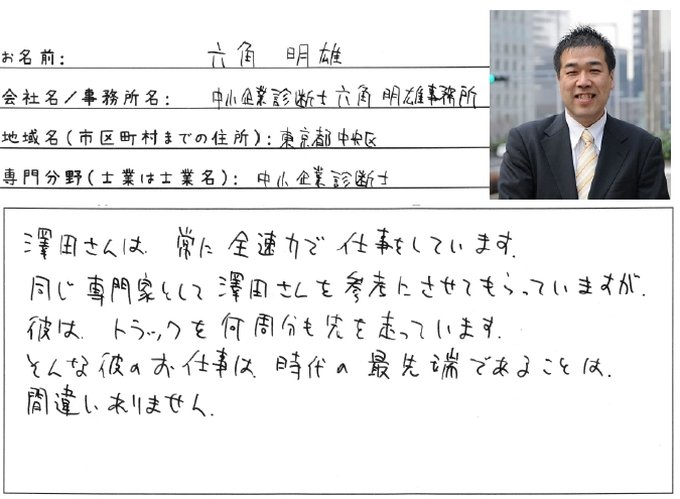 お名前: 六角 明雄
会社名/事務所名: 中小企業診断士六角明雄事務所
地域名(市区町村までの住所): 東京都中央区
専門分野(士業は士業名): 中小企業診断士
澤田さんは、常に全速力で仕事をしています。
同じ専門家として澤田さんを参考にさせてもらっていますが、
彼は、トラックを何周分も先を走っています。
そんな彼のお仕事は、時代の最先端であることは、
間違いありません。